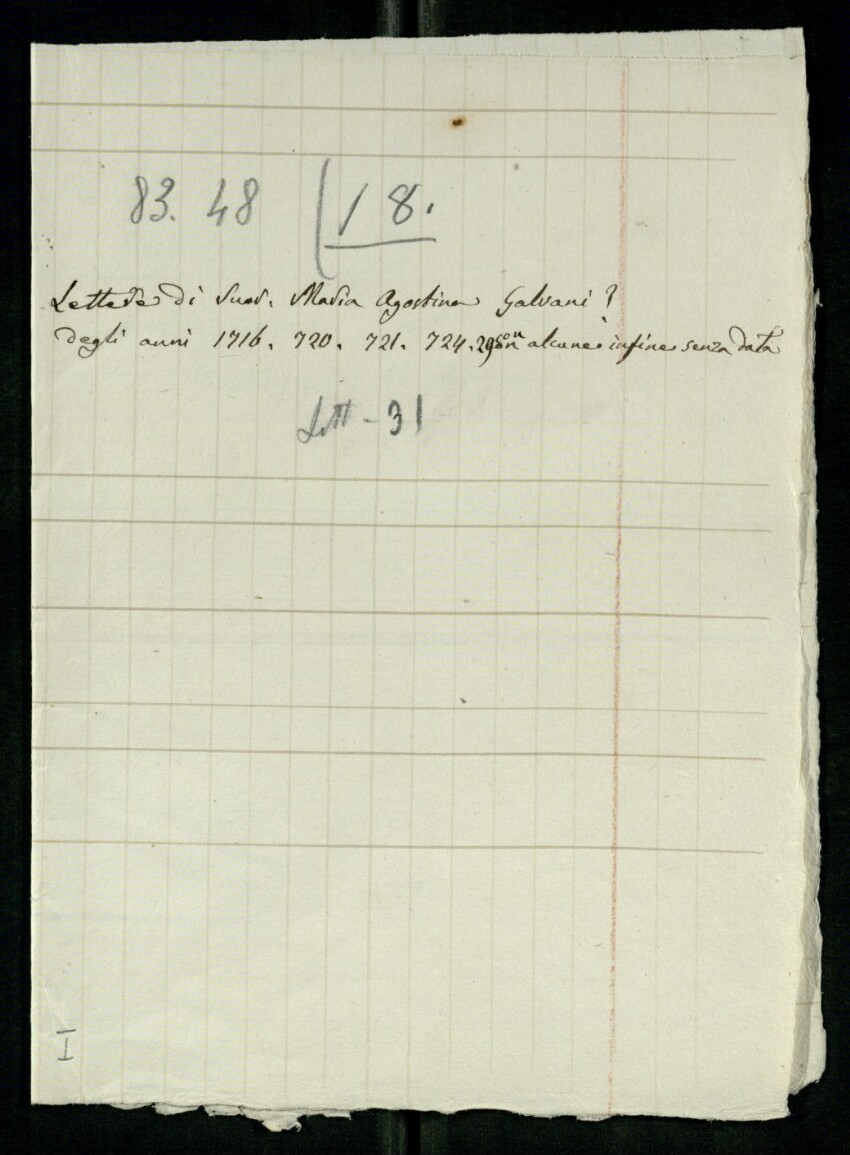 83. 48 (18.
Lettere di Suor. Maria Agostina Galvani?
degli anni 1716. 720. 721. 724. con alcune infine senza data
Lett - 31
I